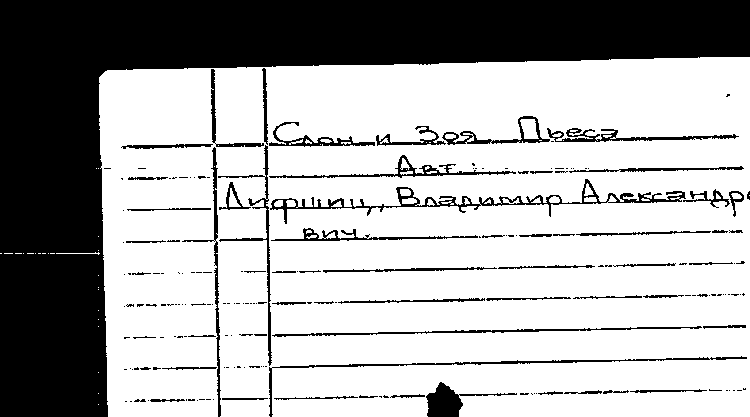 Слон и Зоя. Пьеса
Авт.:
Лифшиц, Владимир Александро
вич.